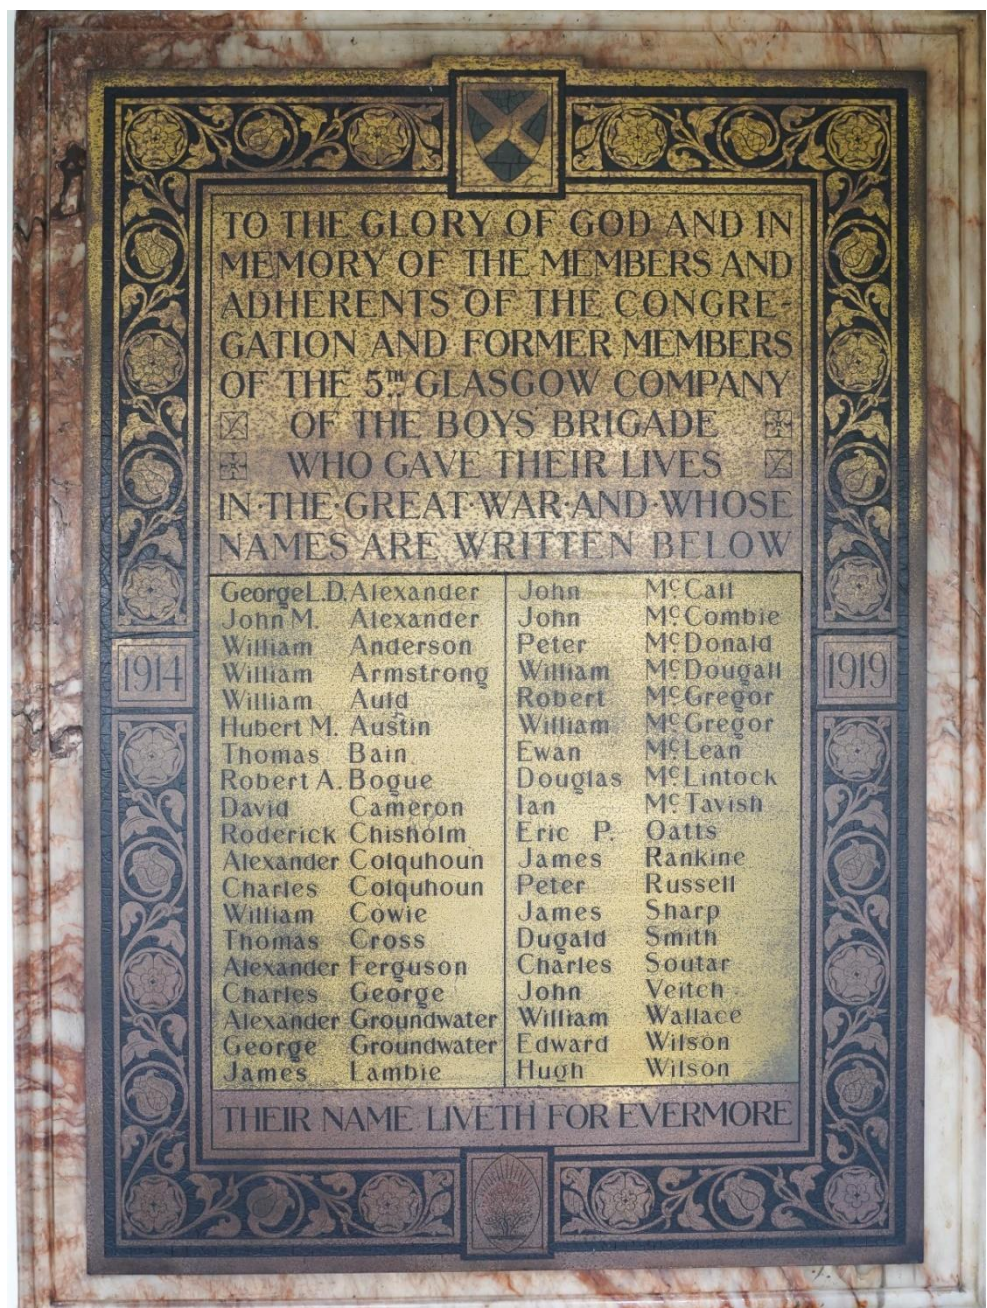 TO THE GLORY OF GOD AND IN
MEMORY OF THE MEMBERS AND
ADHERENTS OF THE CONGRE-
GATION AND FORMER MEMBERS
OF THE 5TH GLASGOW COMPANY
OF THE BOYS BRIGADE
WHO GAVE THEIR LIVES
IN·THE·GREAT·WAR·AND·WHOSE
NAMES ARE WRITTEN BELOW
1914
George L.D. Alexander
John M. Alexander
William Anderson
William Armstrong
William Auld
Hubert M. Austin
Thomas Bain
Robert A. Bogue
David Cameron
Roderick Chisholm
Alexander Colquhoun
Charles Colquhoun
William Cowie
Thomas Cross
Alexander Ferguson
Charles George
Alexander Groundwater
George Groundwater
James Lambie
John McCall
John McCombie
Peter McDonald
William McDougall
Robert McGregor
William McGregor
Ewan McLean
Douglas McLintock
Ian McTavish
Eric P. Oatts
James Rankine
Peter Russell
James Sharp
Dugald Smith
Charles Soutar
John Veitch
William Wallace
Edward Wilson
Hugh Wilson
1919
THEIR NAME LIVETH FOR EVERMORE